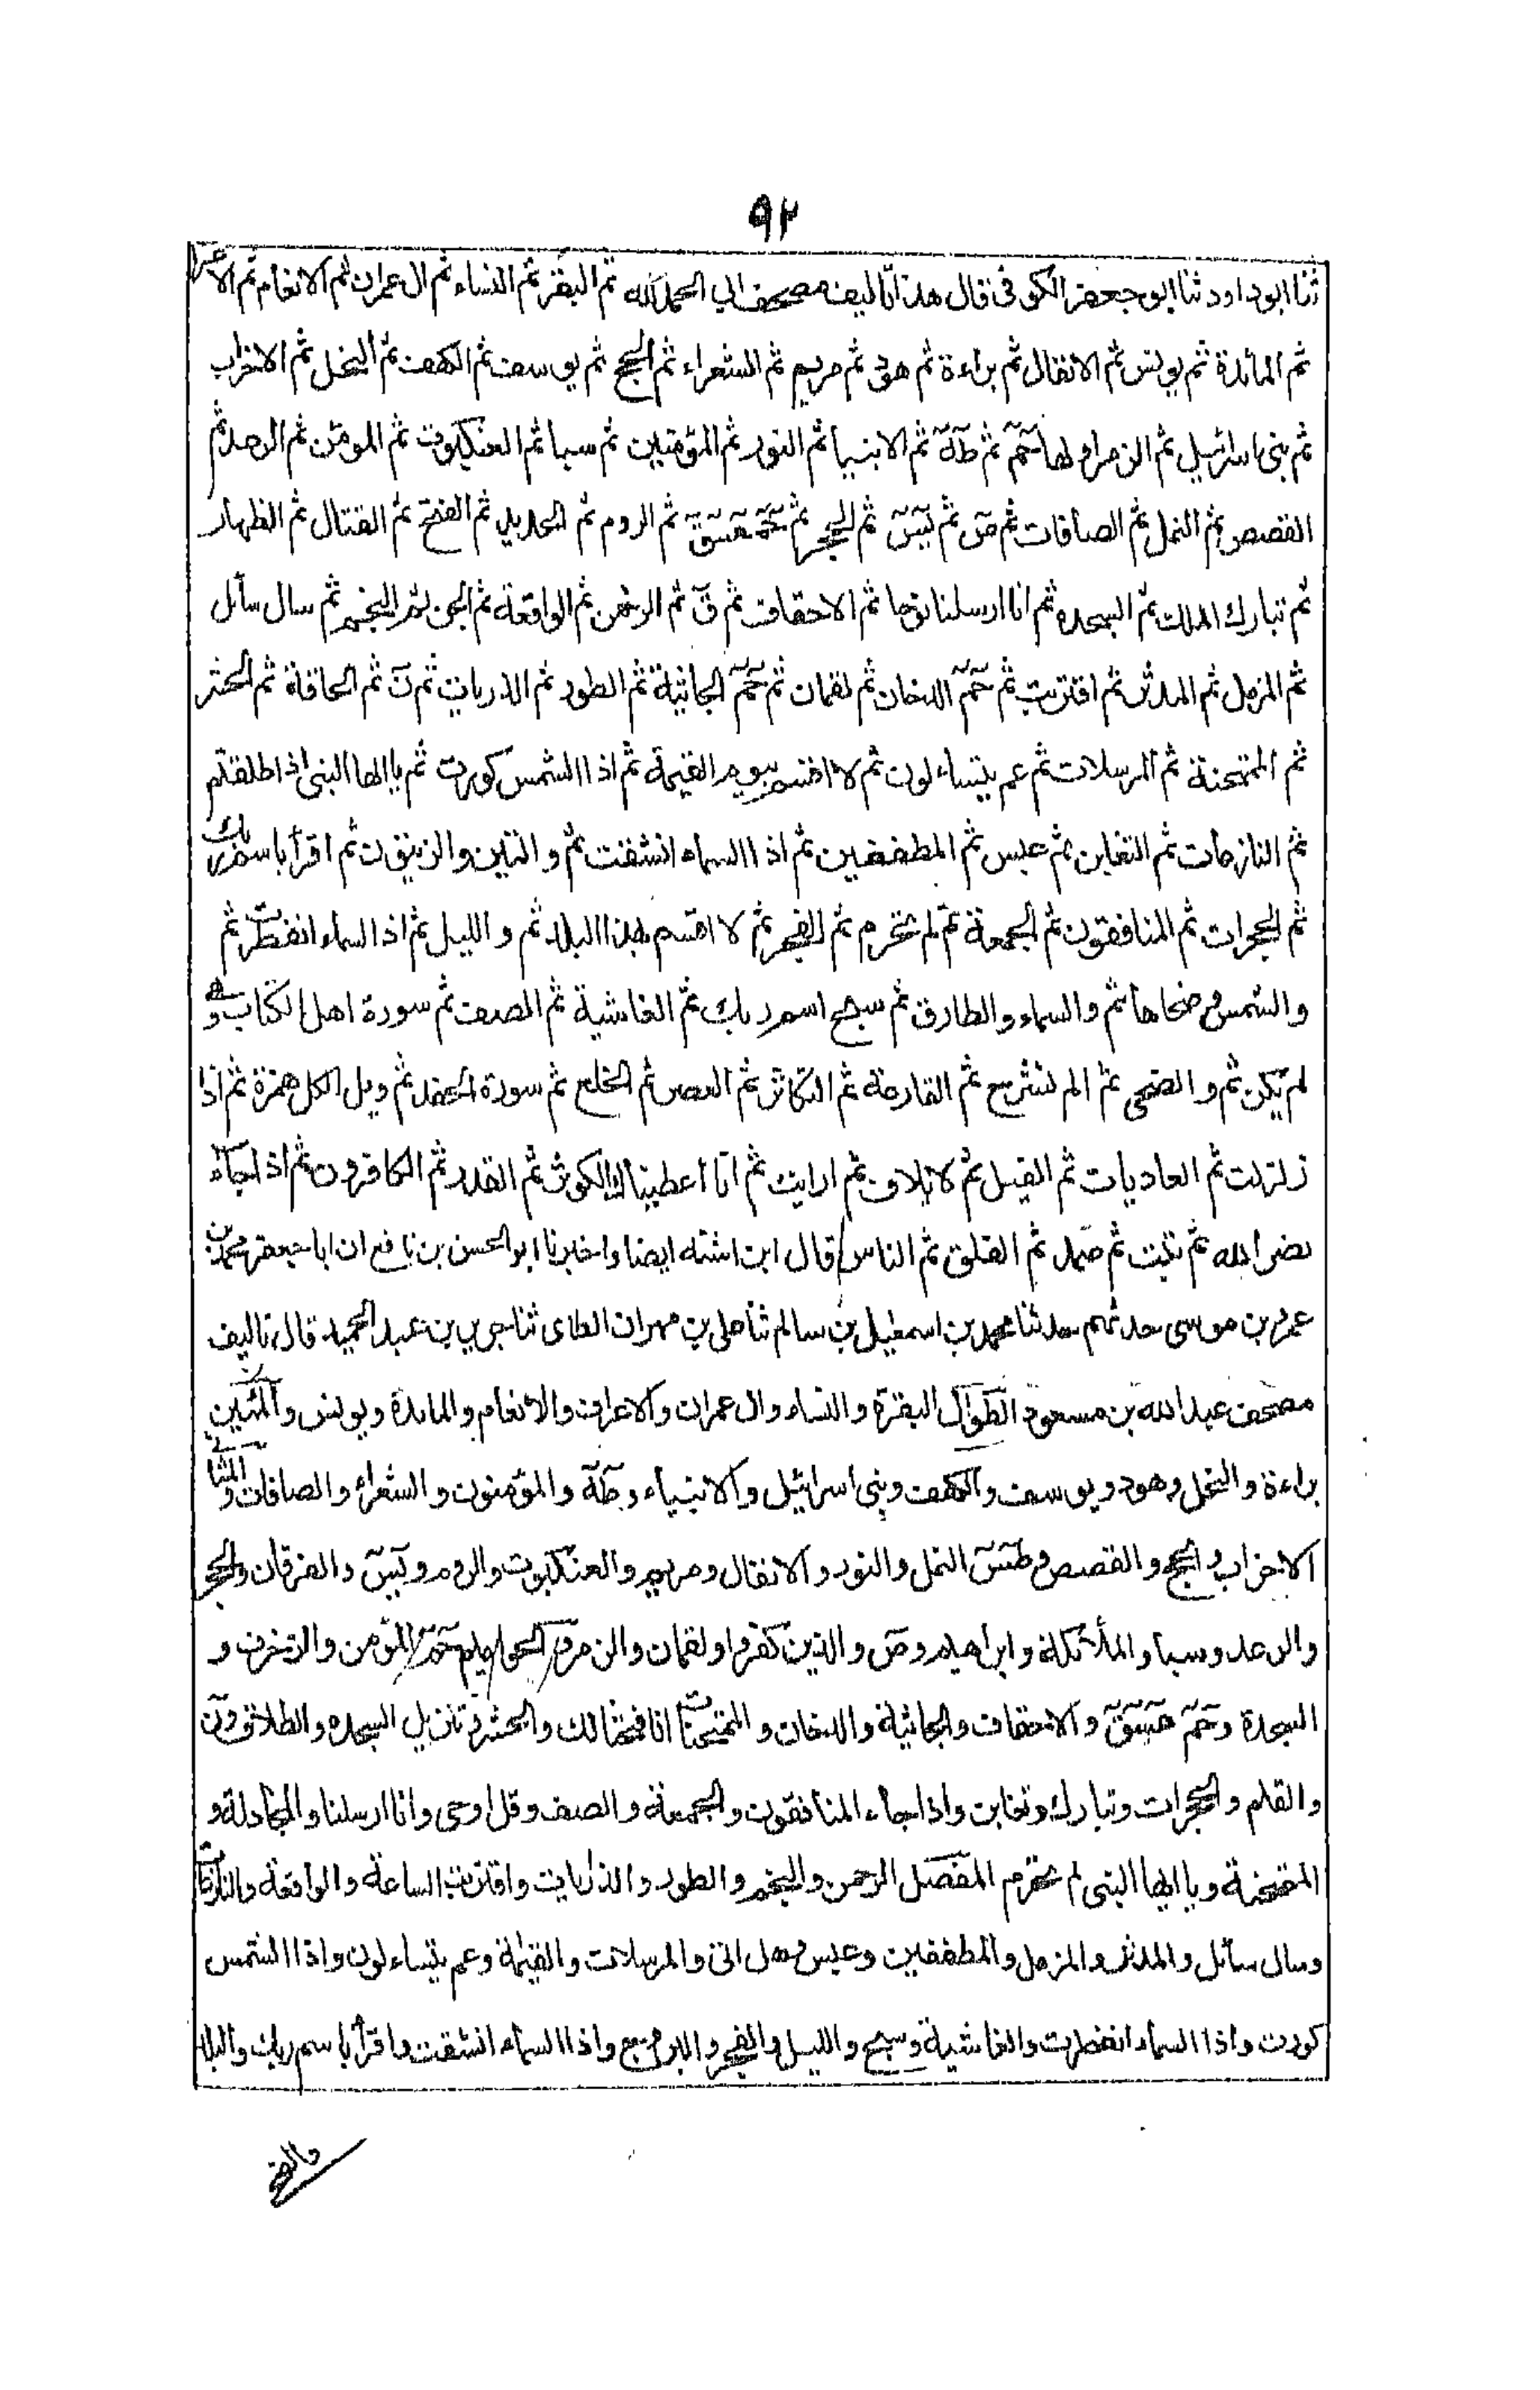 ٩٢
ثنا ابوداود ثنا ابو جعفر الكوفى قال هذا تاليف مصحف ابي الحمد لله ثم البقر ثم النساء ثم ال عمران ثم الانعام ثم الاعرا
ثم المائدة ثم يونس ثم الانفال ثم براءة ثم هود ثم مريم ثم الشعراء ثم الحج ثم يوسف ثم الكهف ثم النحل ثم الاحزاب
ثم بنى اسرائيل ثم الزمر اولها حم ثم طه ثم الانبيا ثم النور ثم المؤمنين ثم سبا ثم العنكبوت ثم المومن ثم الرعد ثم
القصص ثم النمل ثم الصافات ثم ص ثم يس ثم الحجر ثم حمعسق ثم الروم ثم الحديد ثم الفتح ثم القتال ثم الظهار
ثم تبارك الملك ثم السجده ثم انا ارسلنا نوحا ثم الاحقاف ثم ق ثم الرحمن ثم الواقعة ثم الجن ثم النجم ثم سال سائل
ثم المزمل ثم المدثر ثم اقتربت ثم حم الدخان ثم لقمان ثم حم الجاثية ثم الطور ثم الذريات ثم ن ثم الحاقة ثم الحشر
ثم الممتحنة ثم المرسلات ثم عم يتساءلون ثم لا اقسم بيوم القيمة ثم اذا الشمس كورت ثم ياايها النبى اذا طلقتم
ثم النازعات ثم التغابن ثم عبس ثم المطففين ثم اذا السماء انشقت ثم والتين والزيتون ثم اقرأ باسم ربك
ثم الحجرات ثم المنافقون ثم الجمعة ثم لم تحرم ثم الفجر ثم لا اقسم بهذا البلد ثم والليل ثم اذا السماء انفطرت ثم
والشمس وضحاها ثم والسماء والطارق ثم سبح اسم ربك ثم الغاشية ثم الصف ثم سورة اهل الكتاب وهى
لم يكن ثم والضحى ثم الم نشرح ثم القارعة ثم التكاثر ثم العصر ثم الخلع ثم سورة الحفد ثم ويل لكل همزة ثم اذا
زلزلت ثم العاديات ثم الفيل ثم لايلاف ثم ارايت ثم انا اعطيناك الكوثر ثم القدر ثم الكافرون ثم اذا جآء
نصر الله ثم تبت ثم صمد ثم الفلق ثم الناس قال ابن اشته ايضا واخبرنا ابو الحسن بن نافع ان ابا جعفر محمد بن
عمرو بن موسى حدثهم حدثنا محمد بن اسمعيل بن سالم ثنا على بن مهران الطاى ثنا جرير بن عبد الحميد قال تاليف
مصحف عبدالله بن مسعود الطوال البقرة والنساء وال عمران والاعراف والانعام والمائدة ويونس والمئين
براءة والنحل وهود ويوسف والكهف وبنى اسرائيل والانبياء وطه والمؤمنون والشعراء والصافات والمثانى
الاحزاب والحج والقصص وطس النمل والنور والانفال ومريم والعنكبوت والروم ويس والفرقان والحجر
والرعد وسبا والملائكة وابراهيم وص والذين كفروا ولقمان والزمر والحواميم حم المؤمن والزخرف و
السجدة وحم عسق والاحقاف والجاثية والدخان والممتحنات انا فتحنا لك والحشر وتنزيل السجده والطلاق ون
والقلم والحجرات وتبارك وتغابن واذا جاءك المنافقون والجمعة والصف وقل اوحى وانا ارسلنا والمجادلة و
الممتحنة وياايها النبى لم تحرم المفصل الرحمن والنجم والطور والذاريات واقتربت الساعة والواقعة والنازعات
وسال سائل والمدثر والمزمل والمطففين وعبس وهل اتى والمرسلات والقيمة وعم يتساءلون واذا الشمس
كورت واذا السماء انفطرت والغاشية وسبح والليل والفجر والبروج واذا السماء انشقت واقرأ باسم ربك والبلد
والضحى